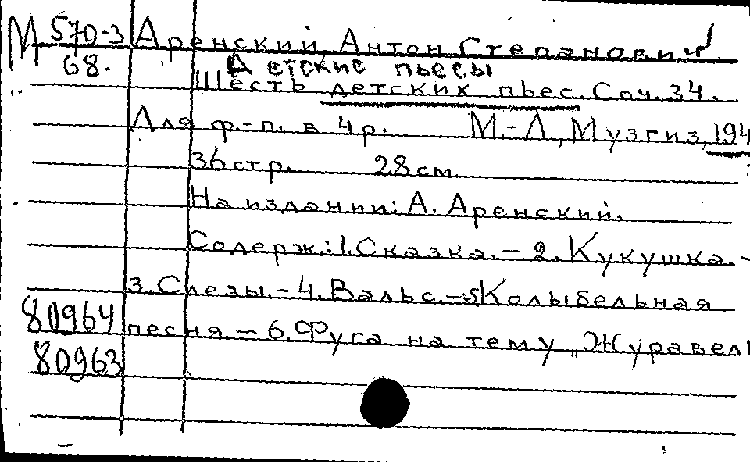 М 570-3 Аренский, Антон Степанович
68. Детские пьесы
Шесть детских пьес. Соч. 34.
Для ф-п. в 4 р. М.-Л, Музгиз, 194
36 стр. 28 см.
На издании: А. Аренский.
Содерж.: 1. Сказка. - 2. Кукушка. -
3. Слезы. - 4. Вальс. - 5. Колыбельная
80964 песня - 6. Фуга на тему „Журавель
80963